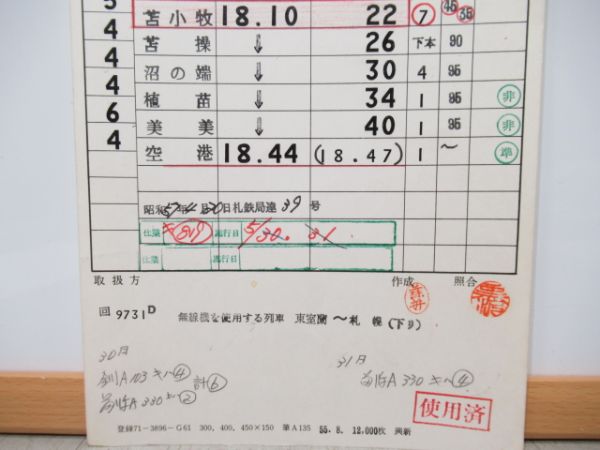 5
苫小牧 18.10 22 ⑦ 45 35
4 苫操 ↓ 26 下本 90
4 沼の端 ↓ 30 4 95
4 植苗 ↓ 34 1 95 非
6 美美 ↓ 40 1 95 非
4 空港 18.44 (18.47) 1 〜 準
昭和57年4月30日札鉄局達39号
仕業 819 施行日 5/30. 31
仕業 施行日
取扱方 作成 照合
回9731D 無線機を使用する列車 東室蘭〜札幌(下り)
30日 31日
計⑥
使用済
登録71-3896-G61 300, 400, 450×150 筆A135 55. 8. 12,000枚 興新